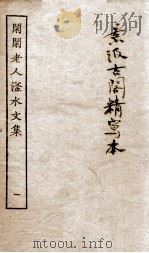 景汲古閣精寫本
閑閑老人滏水文集 一
mtoou.info